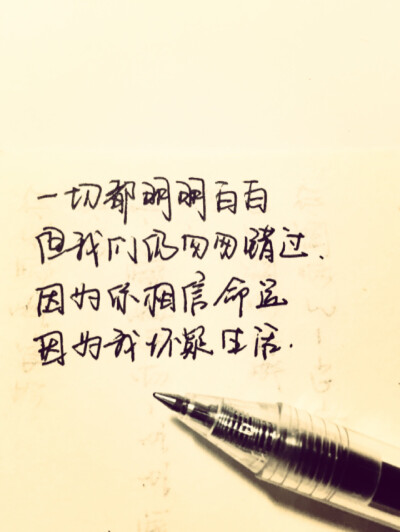 一切都明明白白
但我们仍匆匆错过.
因为你相信命运
因为我怀疑生活.